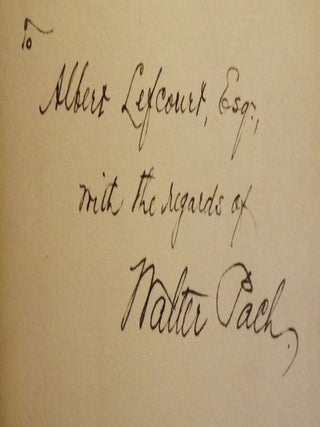 To
Albert Lefcourt, Esq.,
with the regards of
Walter Pach.